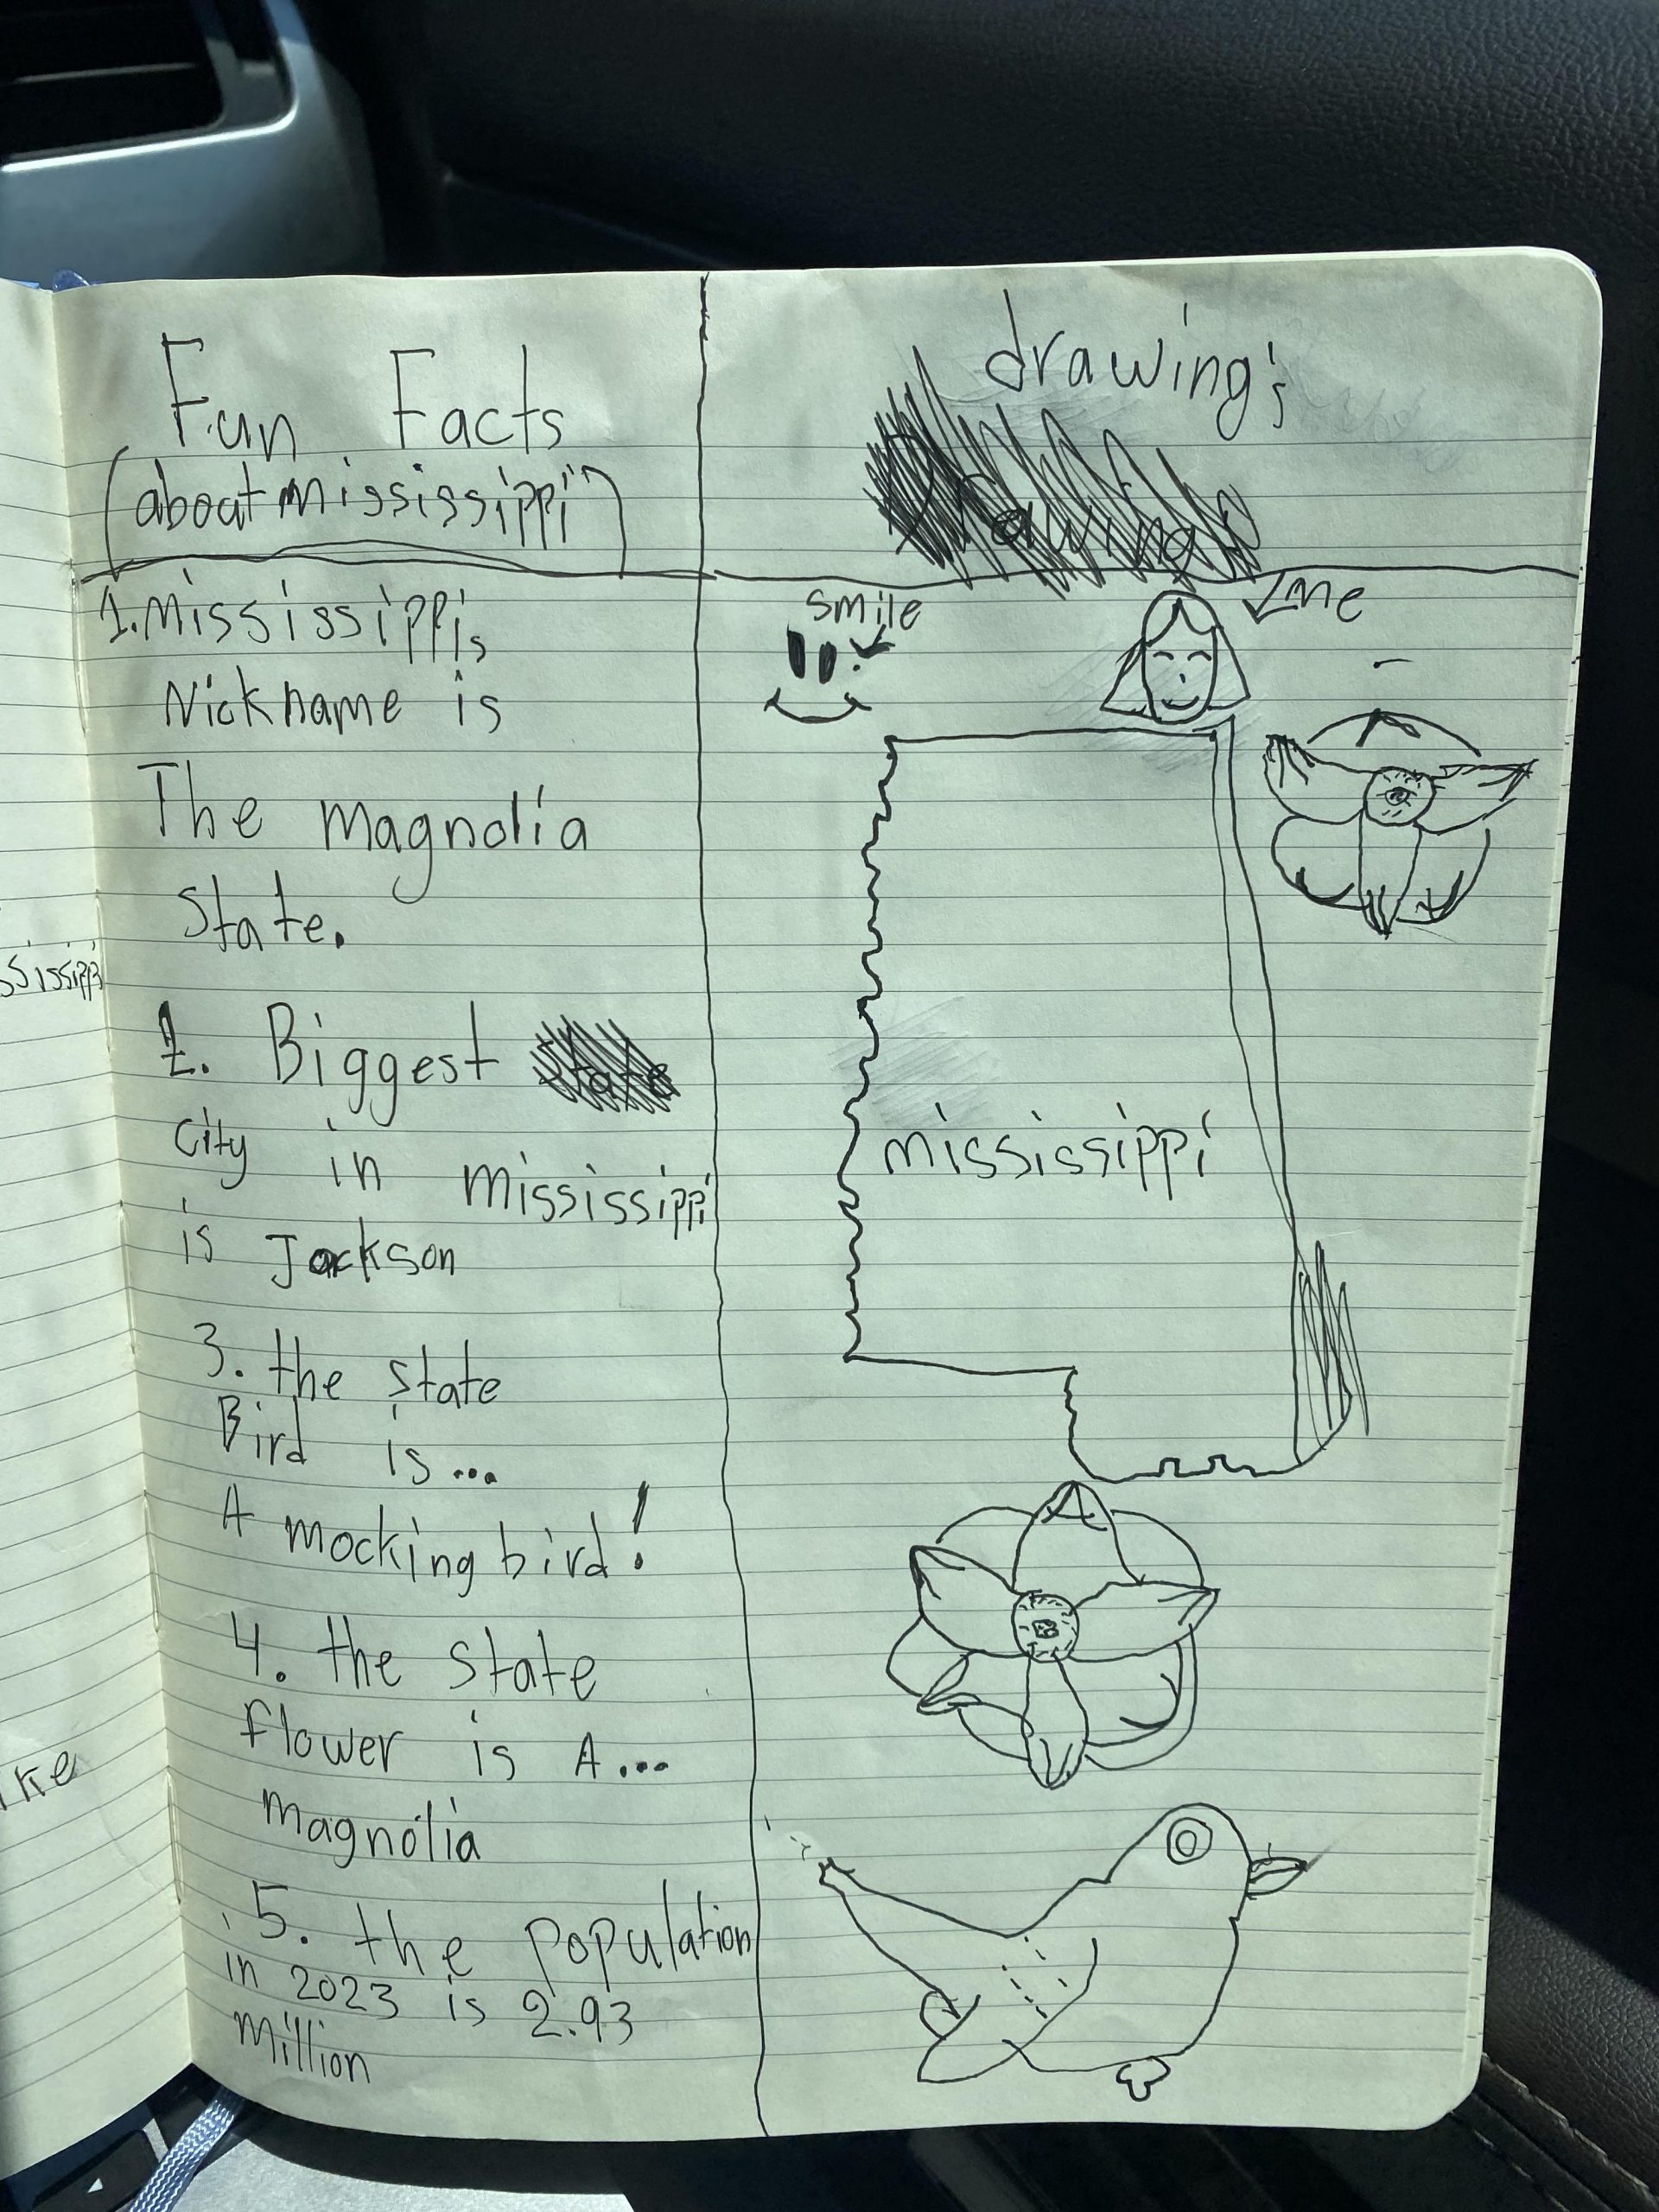 Fun Facts
(about mississippi)
1. mississippis
Nickname is
The magnolia
State.
2. Biggest State
city in mississippi
is Jackson
3. the state
Bird is...
A mocking bird!
4. the state
flower is A...
magnolia
5. the population
in 2023 is 2.93
million
drawing's
Drawing
smile
me
mississippi
ssissippi
ke